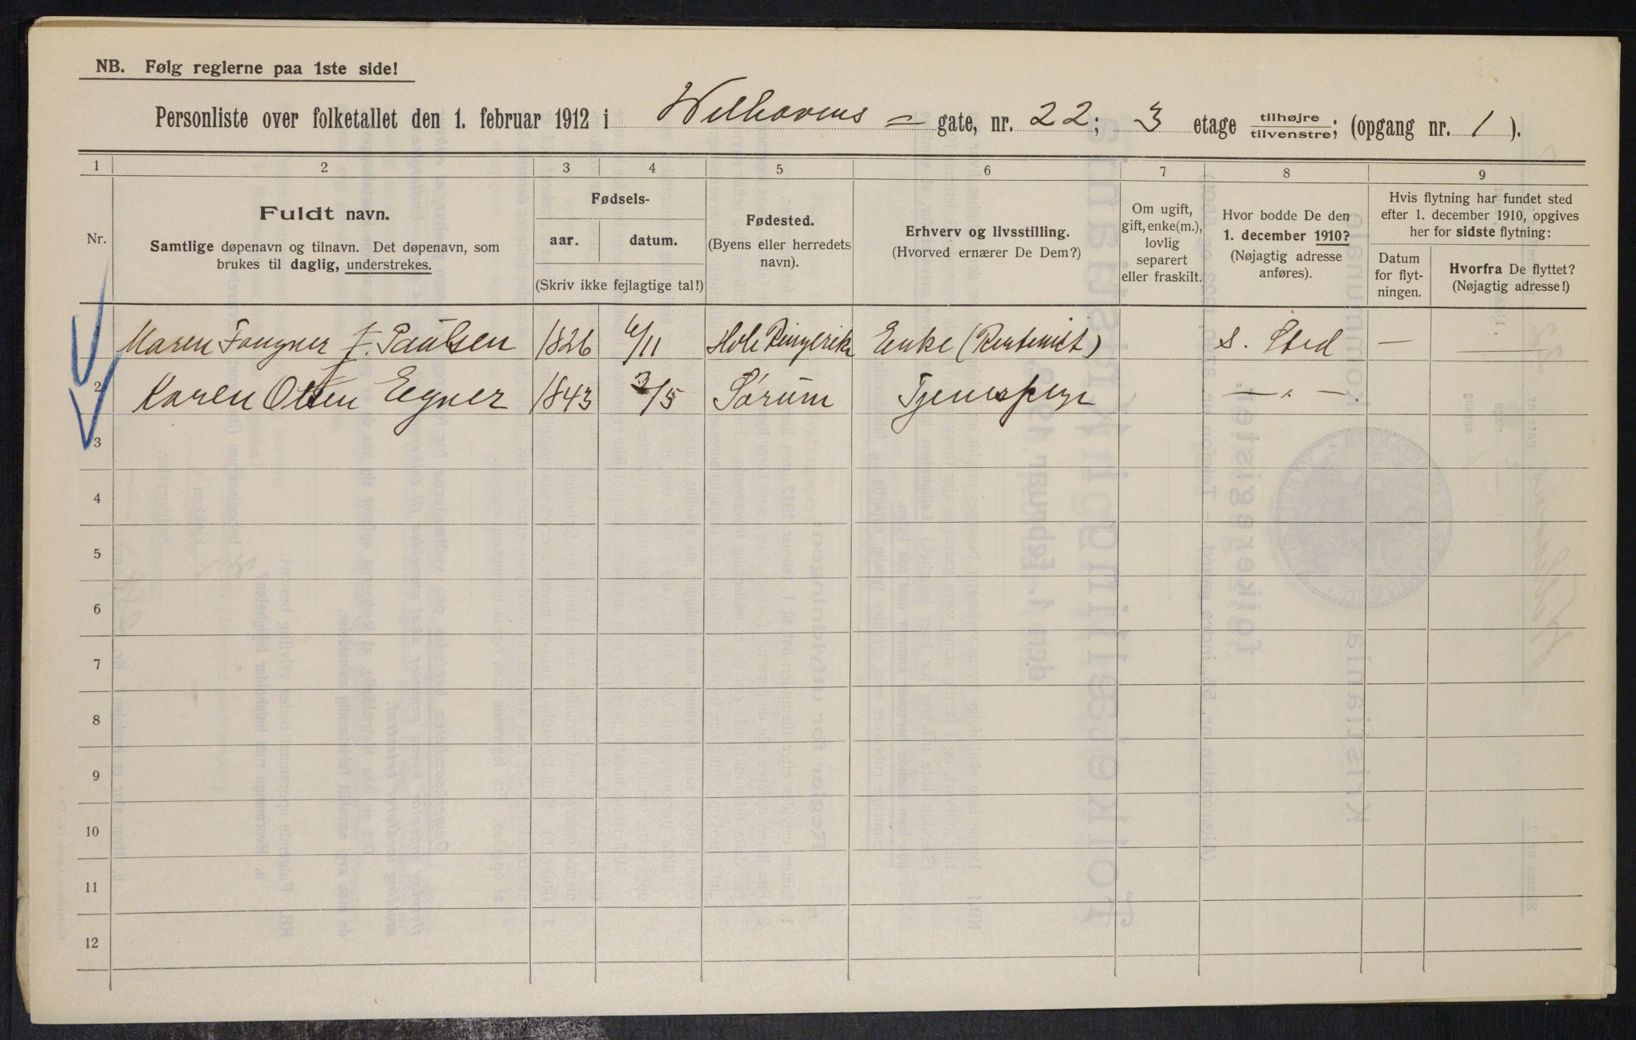 NB. Følg reglerne paa 1ste side!
Personliste over folketallet den 1. februar 1912 i Welhavens = gate, nr. 22; 3 etage tilhøjre tilvenstre; (opgang nr. 1).
1 2 3 4 5 6 7 8 9
Nr.
Fuldt navn.
Samtlige døpenavn og tilnavn. Det døpenavn, som
brukes til daglig, understrekes.
Fødsels-
aar. datum.
(Skriv ikke fejlagtige tal!)
Fødested.
(Byens eller herredets
navn).
Erhverv og livsstilling.
(Hvorved ernærer De Dem?)
Om ugift,
gift, enke(m.),
lovlig
separert
eller fraskilt.
Hvor bodde De den
1. december 1910?
(Nøjagtig adresse
anføres).
Hvis flytning har fundet sted
efter 1. december 1910, opgives
her for sidste flytning:
Datum
for flyt-
ningen.
Hvorfra De flyttet?
(Nøjagtig adresse!)
Maren Fougner f. Paulsen 1826 6/11 Hole Ringerike Enke (Rentenist) s. Sted — —
2 Karen Olsen Egner 1843 3/5 Sørum Tjenestpige — „ —
3
4
5
6
7
8
9
10
11
12